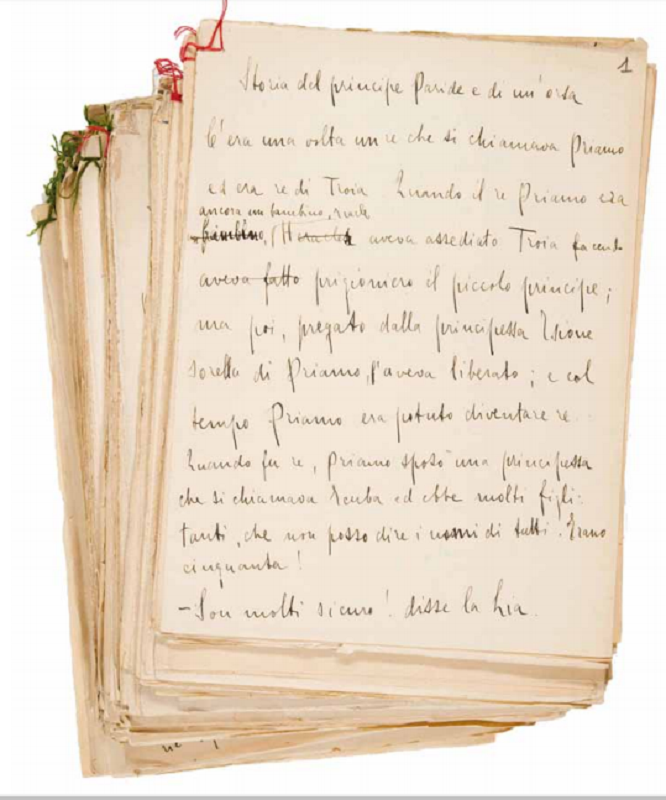 1
Storia del principe Paride e di un'orsa
C'era una volta un re che si chiamava Priamo
ed era re di Troia Quando il re Priamo era
ancora un bambino,
bambino, aveva assediato Troia facendo
aveva fatto prigioniero il piccolo principe;
ma poi, pregato dalla principessa Esione
sorella di Priamo, l'aveva liberato; e col
tempo Priamo era potuto diventare re.
Quando fu re, Priamo sposò una principessa
che si chiamava Ecuba ed ebbe molti figli:
tanti, che non posso dire i nomi di tutti. Erano
cinquanta!
- Son molti sicuro! disse la Lia.